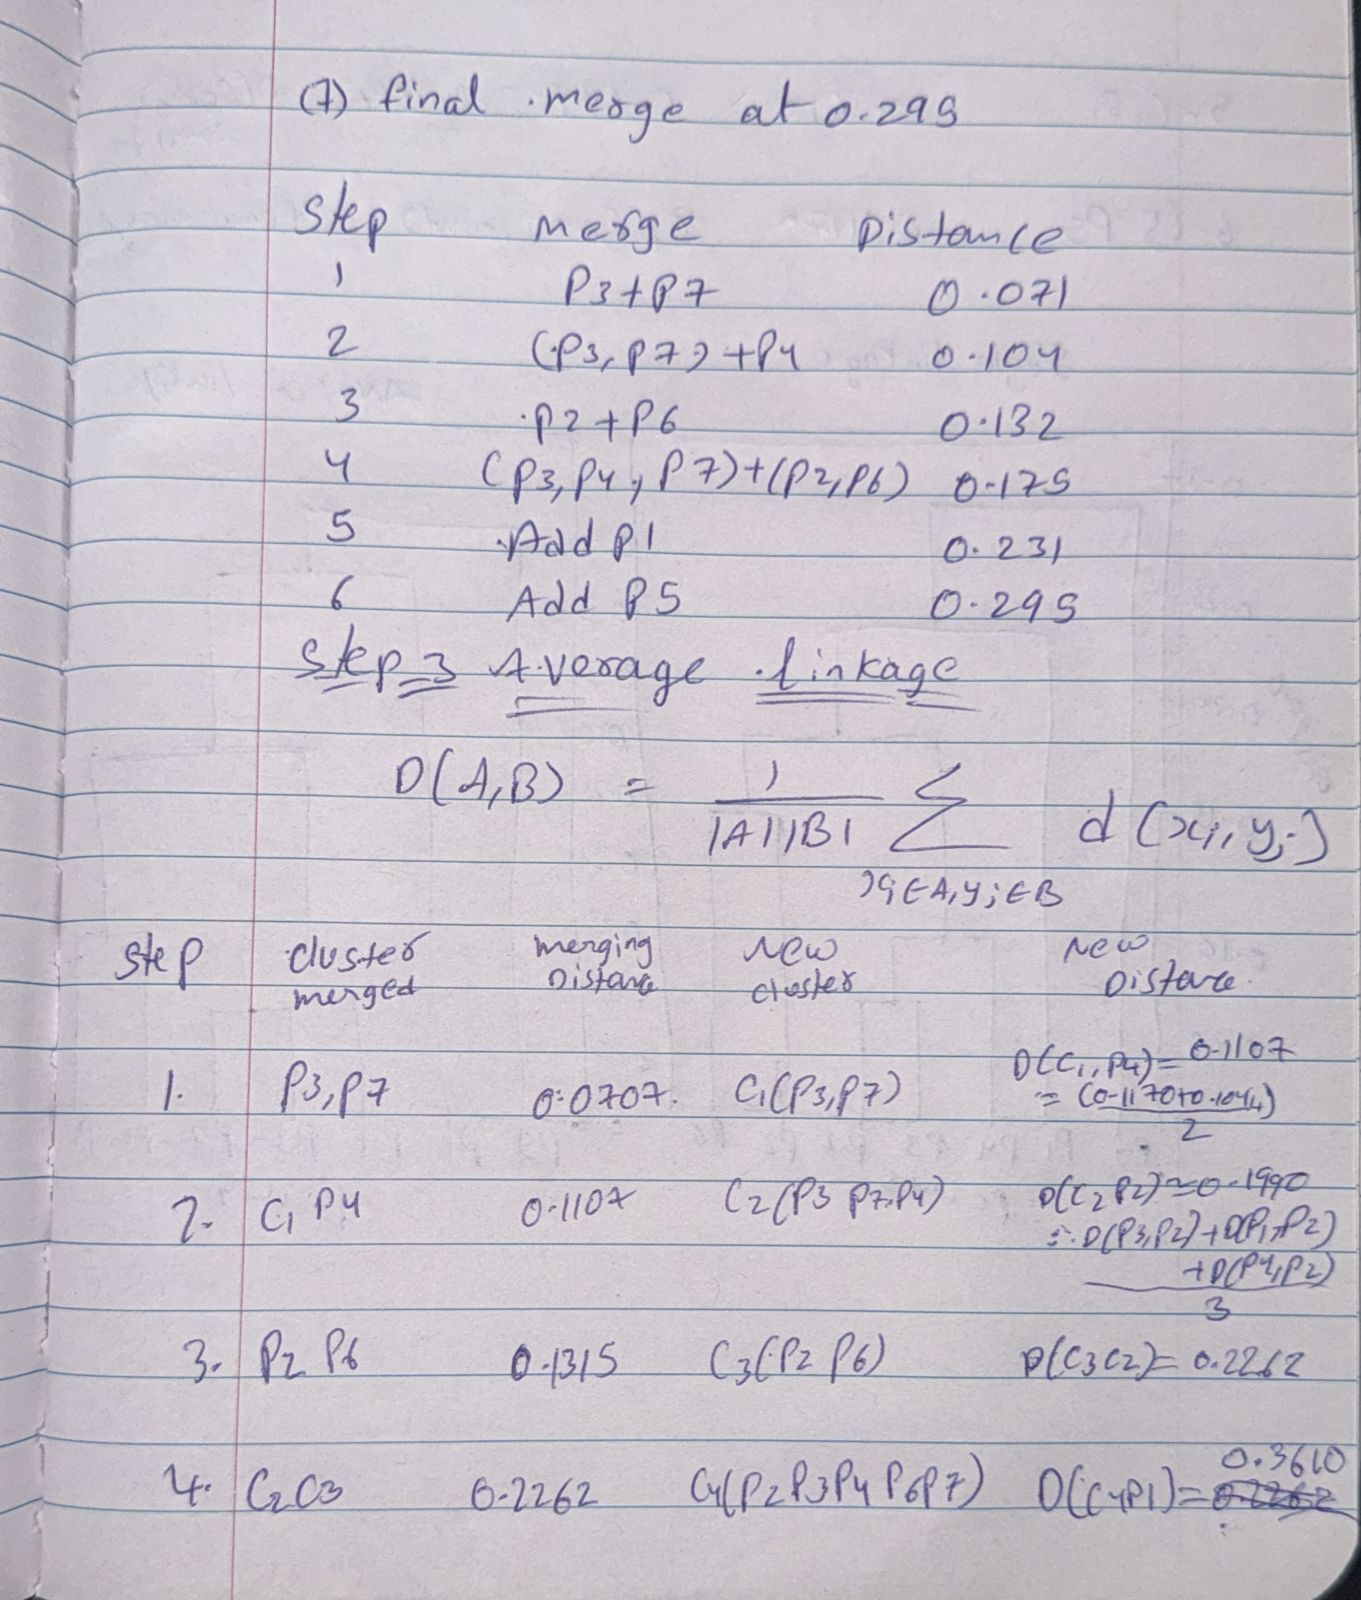 (7) final merge at 0.295
Step Merge Distance
1 P3+P7 0.071
2 (P3,P7)+P4 0.104
3 P2+P6 0.132
4 (P3,P4,P7)+(P2,P6) 0.175
5 Add P1 0.231
6 Add P5 0.295
Step 3 Average linkage
D(A,B) = 1/|A||B| Σ d(xi,yj)
xi∈A,yj∈B
Step cluster merged merging Distance New cluster New Distance
1. P3,P7 0.0707. C1(P3,P7) D(C1,P4)= 0.1107
= (0.1170+0.1044)
2
2. C1 P4 0.1107 C2(P3 P7 P4) D(C2 P2)≈0.1990
= D(P3,P2)+D(P7,P2)
+D(P4,P2)
3
3. P2 P6 0.1315 C3(P2 P6) D(C3C2)= 0.2262
4. C2C3 0.2262 C4(P2P3P4P6P7) D(C4P1)= 0.3610